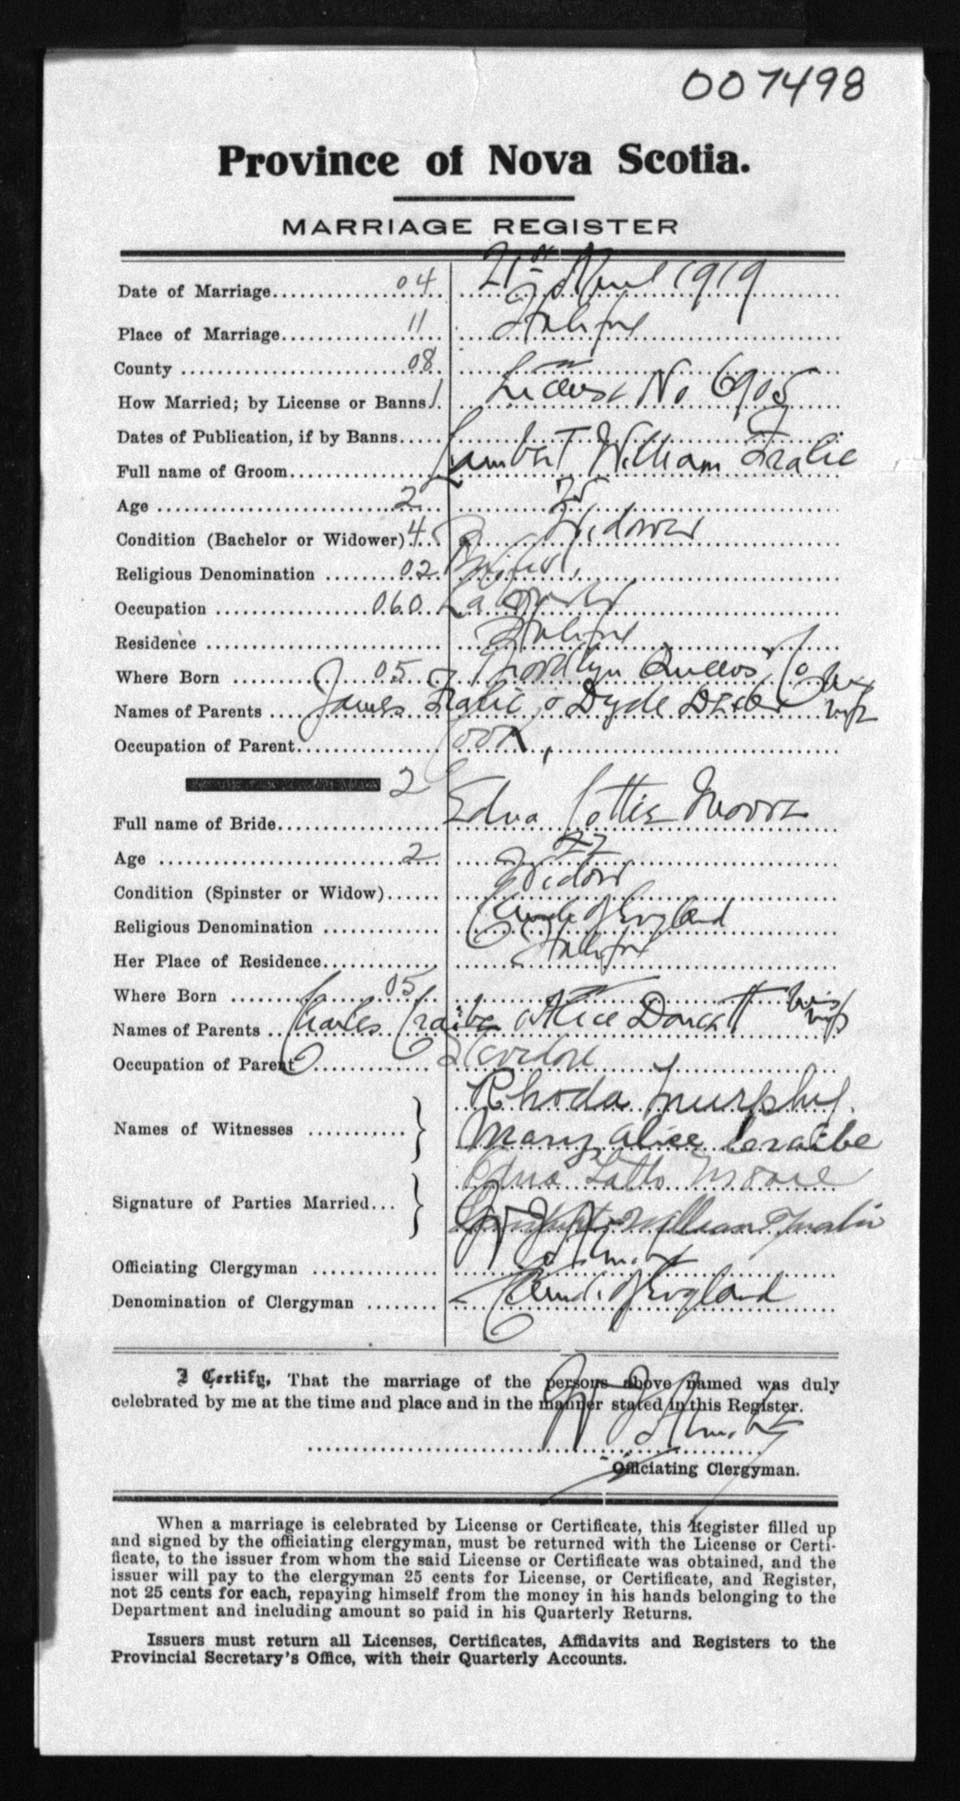 007498
Province of Nova Scotia.
MARRIAGE REGISTER
Date of Marriage 04 21st April 1919
Place of Marriage 11 Halifax
County 08 "
How Married; by License or Banns 1 License No 6905
Dates of Publication, if by Banns
Full name of Groom Lambert William Fralic
Age 2 25
Condition (Bachelor or Widower) 4 Widower
Religious Denomination 02 Baptist,
Occupation 060 Laborer
Residence Halifax
Where Born 05 Brooklyn Queens Co
Names of Parents James Fralic & his wife
Occupation of Parent Cook,
2
Full name of Bride Edna Lottie Moore
Age 2
Condition (Spinster or Widow) Widow
Religious Denomination Church of England
Her Place of Residence Halifax
Where Born 05 "
Names of Parents Charles Craibe & Alice his wife
Occupation of Parent
Names of Witnesses } Rhoda Murphy.
Mary Alice Craibe
Signature of Parties Married } Edna Moore
William
Officiating Clergyman
Denomination of Clergyman Church of England
I Certify, That the marriage of the persons above named was duly
celebrated by me at the time and place and in the manner stated in this Register.
Officiating Clergyman.
When a marriage is celebrated by License or Certificate, this Register filled up
and signed by the officiating clergyman, must be returned with the License or Certi-
ficate, to the issuer from whom the said License or Certificate was obtained, and the
issuer will pay to the clergyman 25 cents for License, or Certificate, and Register,
not 25 cents for each, repaying himself from the money in his hands belonging to the
Department and including amount so paid in his Quarterly Returns.
Issuers must return all Licenses, Certificates, Affidavits and Registers to the
Provincial Secretary's Office, with their Quarterly Accounts.